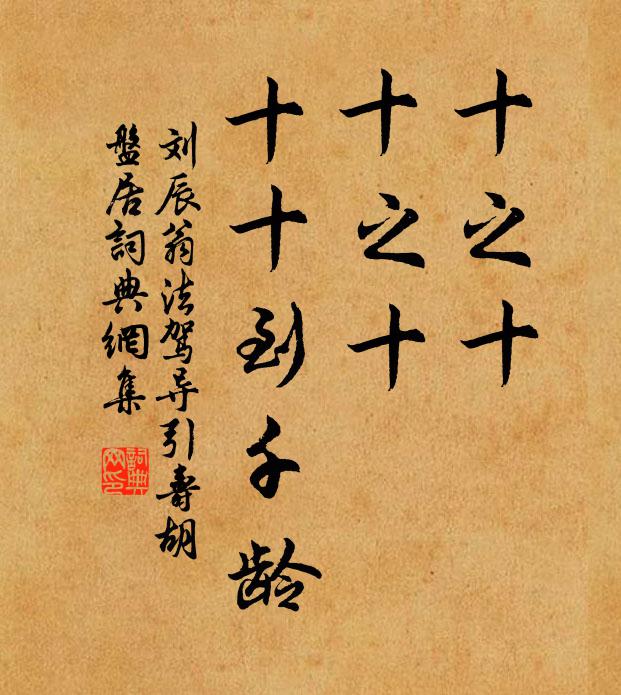 十之十
十之十
十十到千龄
刘辰翁法驾导引壽胡
盤居詞典網集
詞典
网印